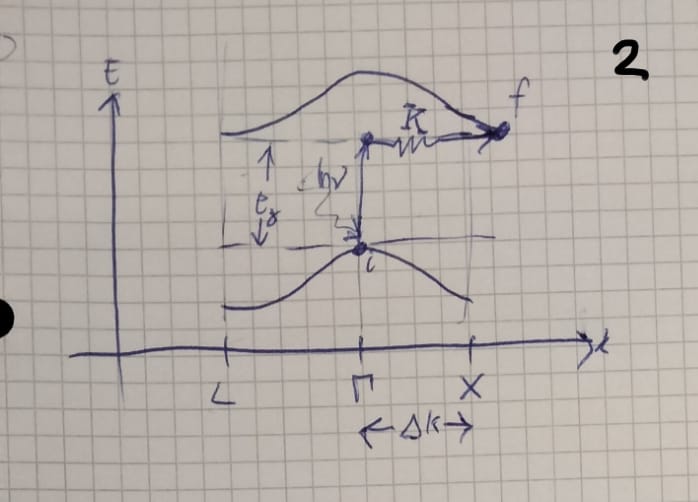 2
E
f
K
hν
e_g
i
k
L Γ X
Δk